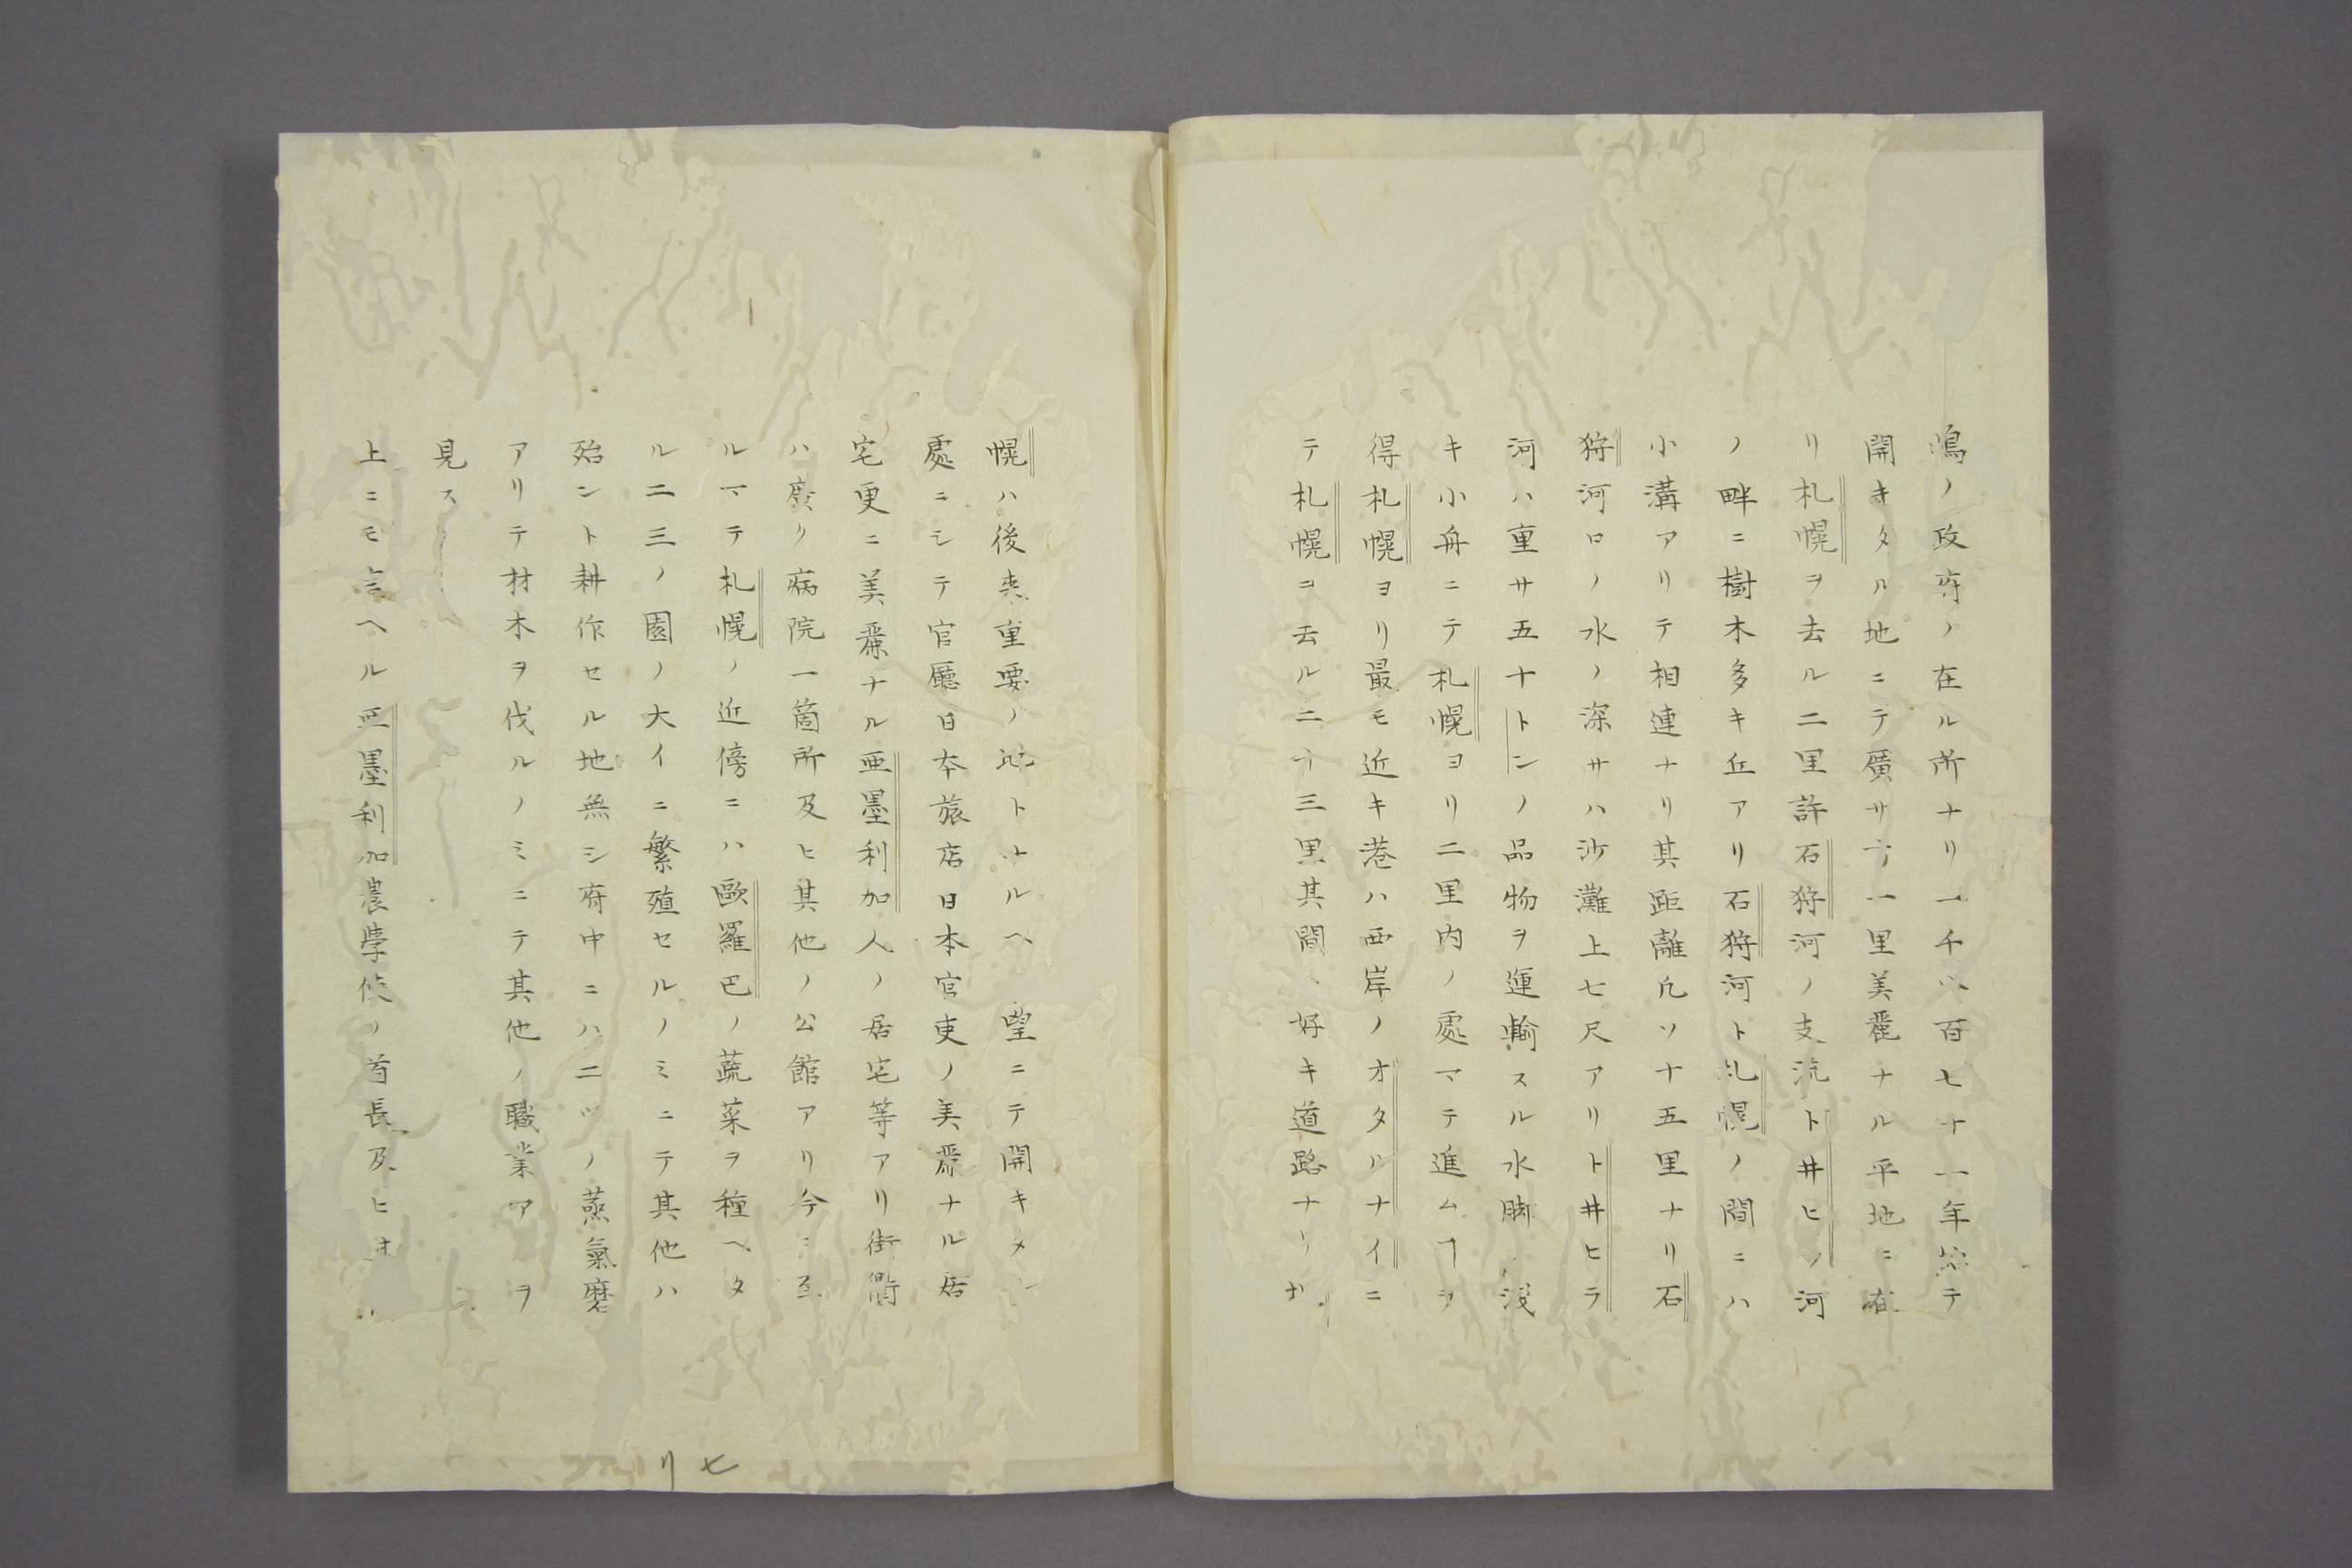 嶋ノ政府ノ在ル所ナリ一千八百七十一年始テ
開キタル地ニテ廣サ方一里美麗ナル平地ニ在
リ札幌ヲ去ル二里許石狩河ノ支流トヰヒソ河
ノ畔ニ樹木多キ丘アリ石狩河ト札幌ノ間ニハ
小溝アリテ相連ナリ其距離凡ソ十五里ナリ石
狩河口ノ水ノ深サハ沙灘上七尺アリトヰヒラ
河ハ重サ五十トンノ品物ヲ運輸スル水脚浅
キ小舟ニテ札幌ヨリ二里内ノ處マテ進ムヿヲ
得札幌ヨリ最モ近キ港ハ西岸ノオタルナイニ
テ札幌ヲ去ル二十三里其間、好キ道路ナリ
幌ハ後来重要ノ地トナルヘ望ニテ開キメ
處ニシテ官廳日本旅店日本官吏ノ美麗ナル居
宅更ニ美麗ナル亜墨利加人ノ居宅等アリ街衢
ハ廣ク病院一箇所及ヒ其他ノ公館アリ今ニ至
ルマテ札幌ノ近傍ニハ歐羅巴ノ蔬菜ヲ種ヘタ
ル二三ノ園ノ大イニ繁殖セルノミニテ其他ハ
殆ント耕作セル地無シ府中ニハ二ツノ蒸氣磨
アリテ材木ヲ伐ルノミニテ其他ノ職業アヲ
見ス
上ニモ云ヘル亜墨利加農学使ノ首長及ヒオ
七リ